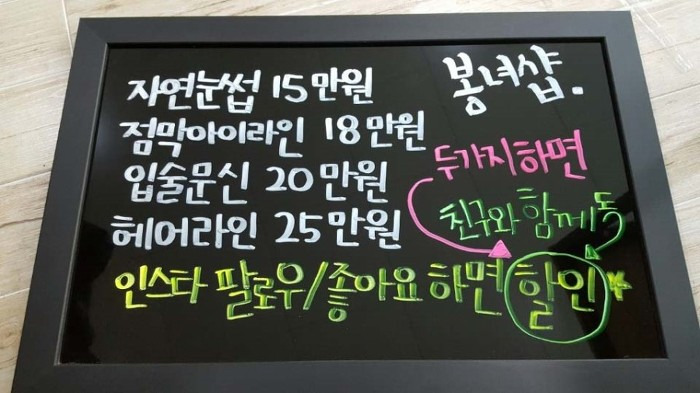 봉녀샵.
자연눈썹 15만원
점막아이라인 18만원
입술문신 20만원
헤어라인 25만원
두가지하면
친구와 함께동
인스타 팔로우/좋아요 하면 할인